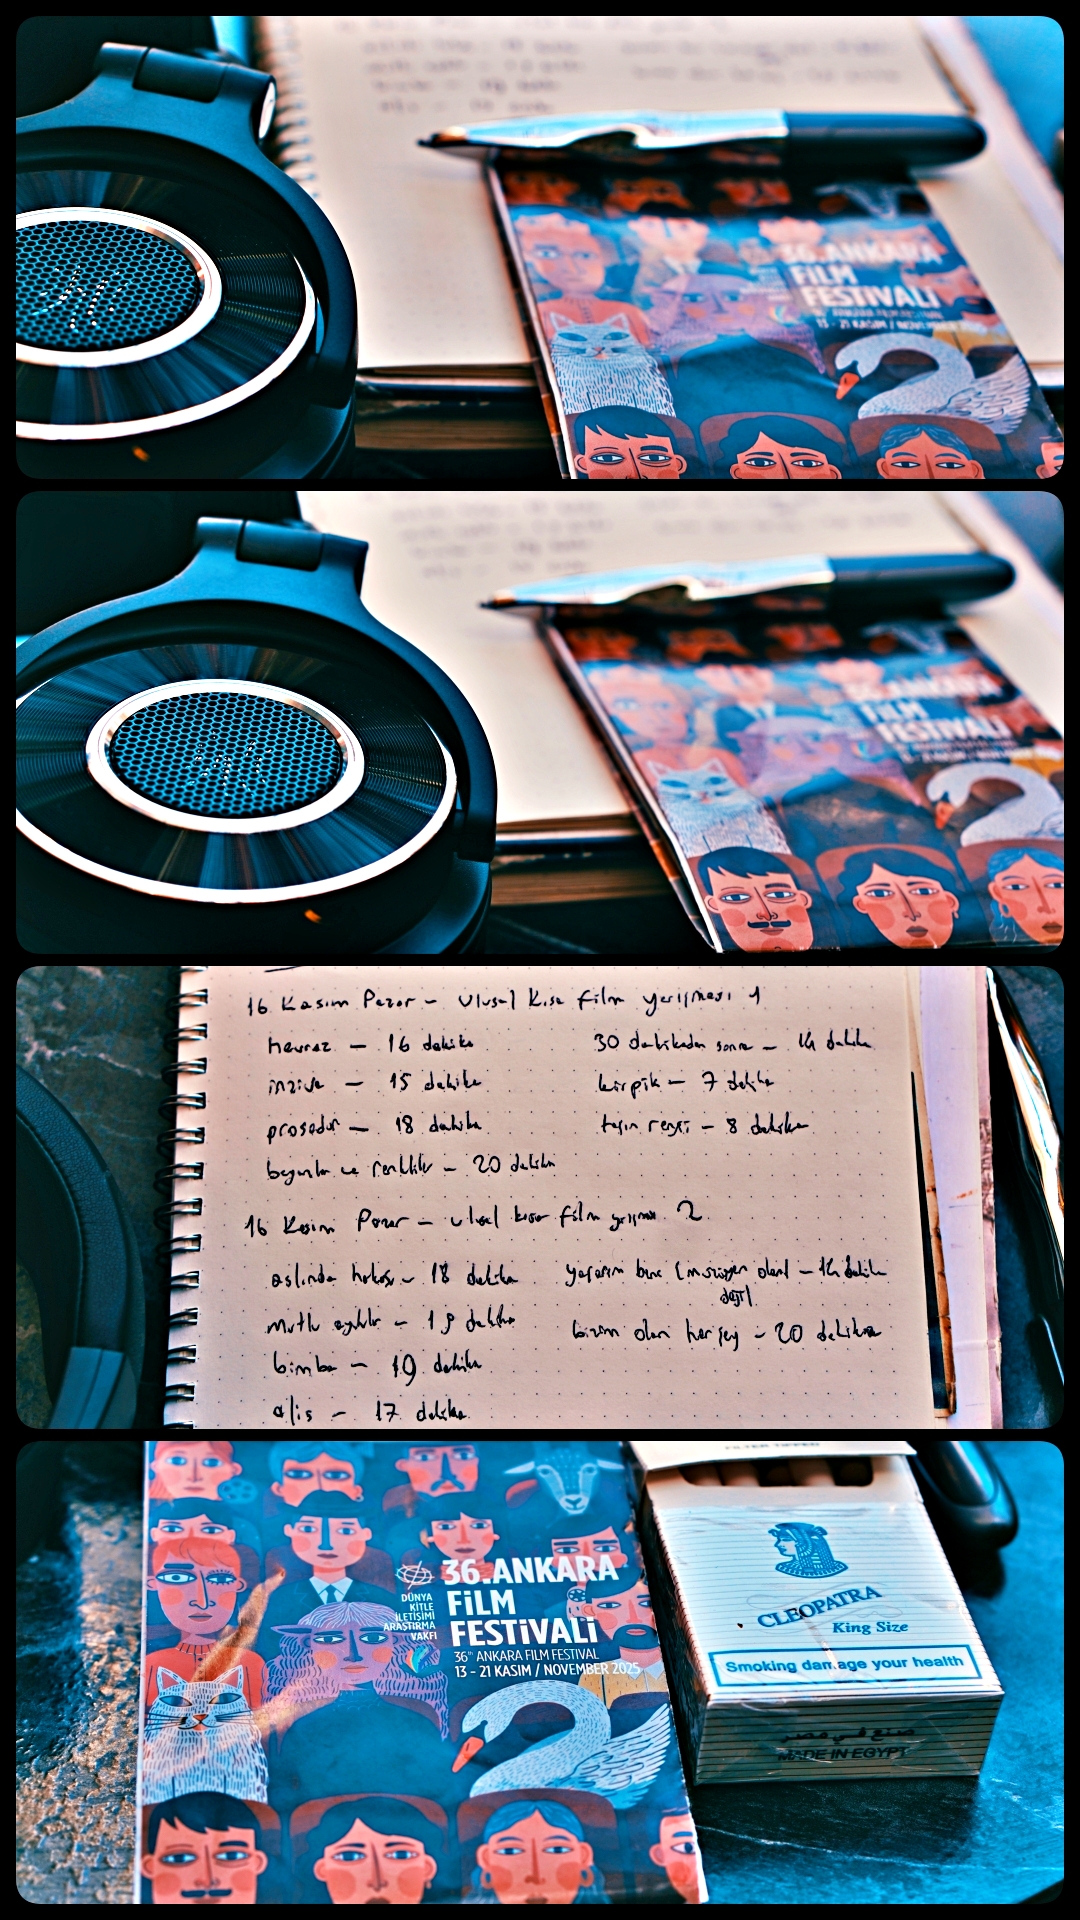 36.ANKARA
FiLM
FESTiVALi
36.ANKARA
FiLM
FESTiVALi
16 Kasım Pazar - Ulusal Kısa film yarışması 1
hevraz - 16 dakika
30 dakikadan sonra - 14 dakika
inziva - 15 dakika
kirpik - 7 dakika
prosedür - 18 dakika
taşın rengi - 8 dakika
beyazlar ve renkliler - 20 dakika
16 Kasım Pazar - ulusal kısa film yarışması 2
aslında hokus - 18 dakika
yararım bana (müsriyen olan) - 14 dakika
değil
mutlu aylılar - 19 dakika
bizim olan her şey - 20 dakika
bimba - 19 dakika
alis - 17 dakika
FILTER TIPPED
36.ANKARA
FiLM
FESTiVALi
DÜNYA
KİTLE
İLETİŞİMİ
ARAŞTIRMA
VAKFI
36th ANKARA FILM FESTIVAL
13 - 21 KASIM / NOVEMBER 2025
CLEOPATRA
King Size
Smoking damage your health
صنع في مصر
MADE IN EGYPT